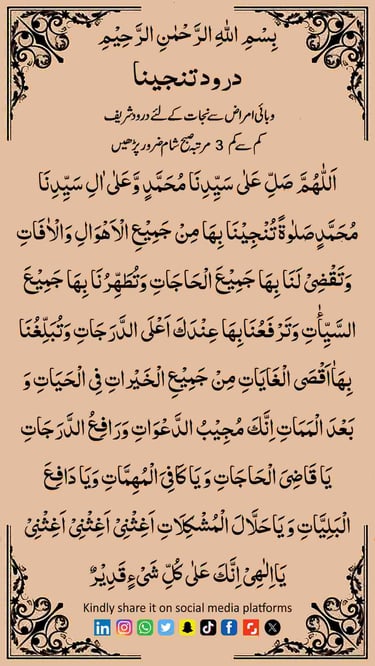 بِسْمِ اللهِ الرَّحْمٰنِ الرَّحِيْمِ
درود تنجینا
وبائی امراض سے نجات کے لئے درود شریف
کم سے کم 3 مرتبہ صبح شام ضرور پڑھیں
اَللّٰهُمَّ صَلِّ عَلٰى سَيِّدِنَا مُحَمَّدٍ وَّعَلٰى اٰلِ سَيِّدِنَا
مُحَمَّدٍ صَلٰوةً تُنْجِيْنَا بِهَا مِنْ جَمِيْعِ الْاَهْوَالِ وَالْاٰفَاتِ
وَتَقْضِىْ لَنَا بِهَا جَمِيْعَ الْحَاجَاتِ وَتُطَهِّرُنَا بِهَا جَمِيْعَ
السَّيِّاٰتِ وَتَرْفَعُنَا بِهَا عِنْدَكَ اَعْلَى الدَّرَجَاتِ وَتُبَلِّغُنَا
بِهَا اَقْصَى الْغَايَاتِ مِنْ جَمِيْعِ الْخَيْرَاتِ فِى الْحَيَاتِ وَ
بَعْدَ الْمَمَاتِ اِنَّكَ مُجِيْبُ الدَّعْوَاتِ وَرَافِعُ الدَّرَجَاتِ
يَا قَاضِىَ الْحَاجَاتِ وَيَا كَافِىَ الْمُهِمَّاتِ وَيَا دَافِعَ
الْبَلِيَّاتِ وَيَا حَلَّالَ الْمُشْكِلَاتِ اَغِثْنِىْ اَغِثْنِىْ اَغِثْنِىْ
يَااِلٰهِىْ اِنَّكَ عَلٰى كُلِّ شَىْءٍ قَدِيْرٌ
Kindly share it on social media platforms